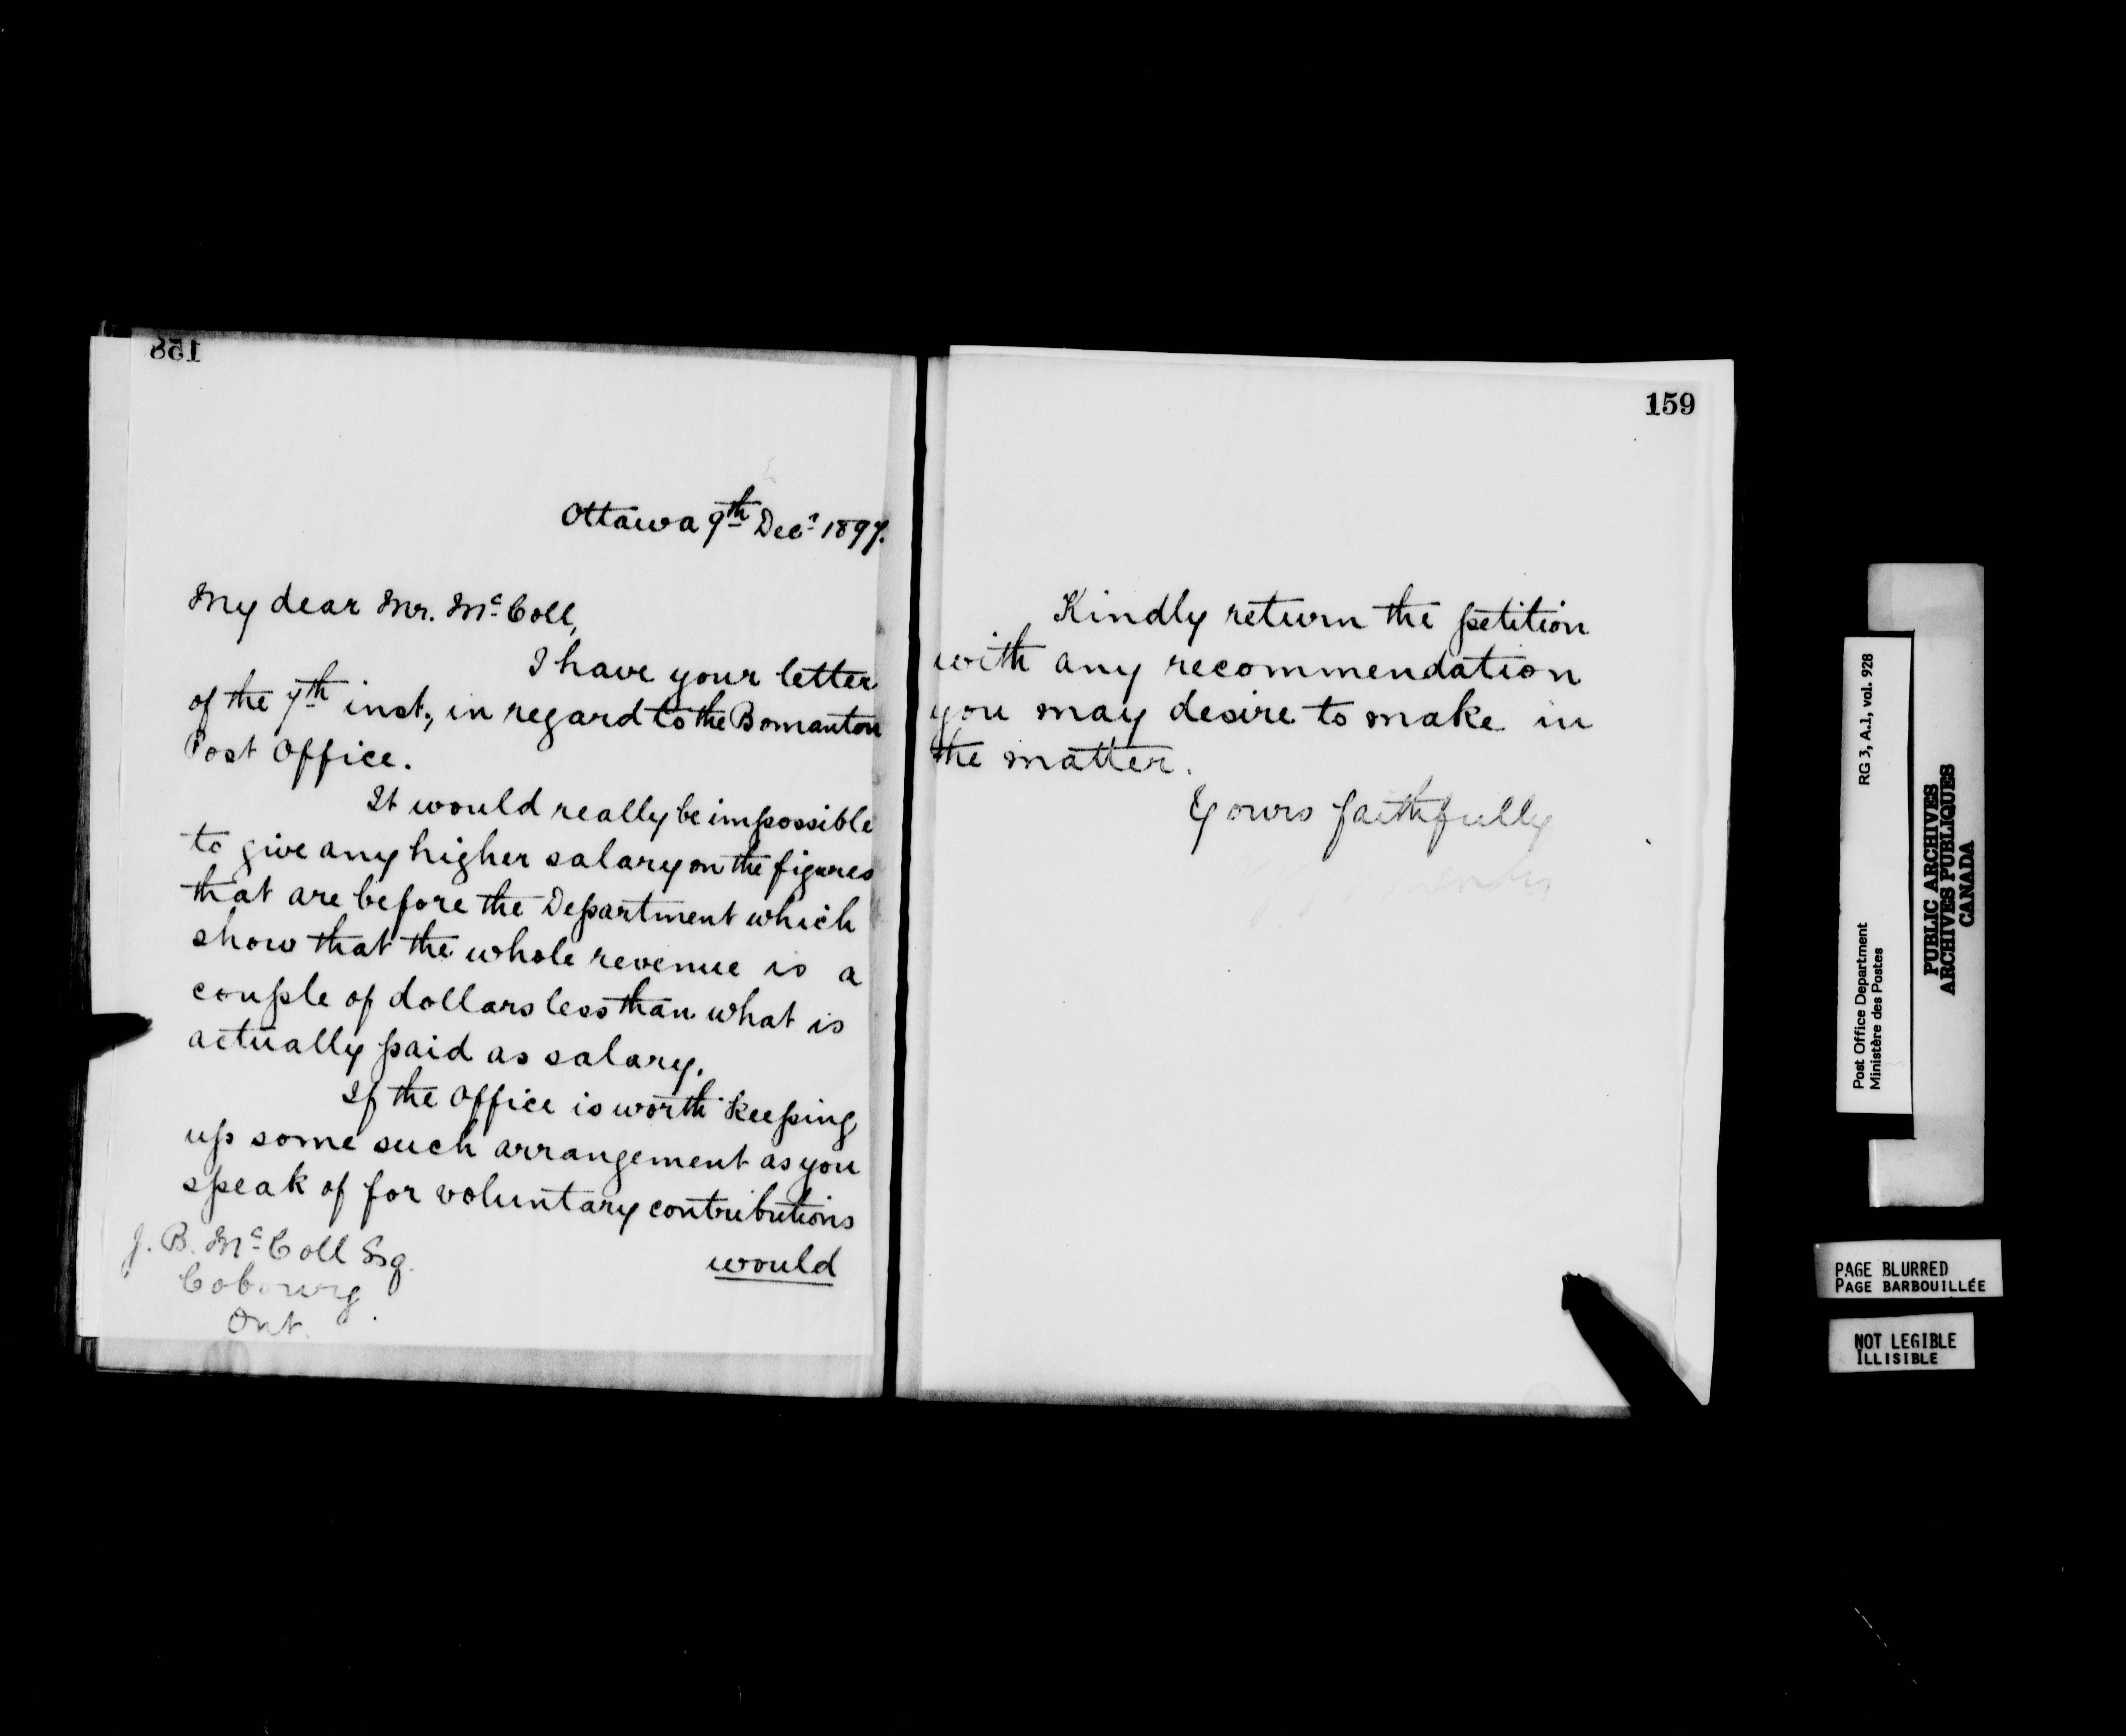 158
Ottawa 9th Decr 1897.
My dear Mr. Mc Coll,
I have your letter
of the 7th inst., in regard to the Bomanton
Post Office.
It would really be impossible
to give any higher salary on the figures
that are before the Department which
show that the whole revenue is a
couple of dollars less than what is
actually paid as salary.
If the Office is worth keeping
up some such arrangement as you
speak of for voluntary contributions
would
J. B. Mc Coll Esq.
Cobourg
Ont.
159
Kindly return the petition
with any recommendation
you may desire to make in
the matter.
Yours faithfully
RG 3, A.1, vol. 928
Post Office Department
Ministère des Postes
PUBLIC ARCHIVES
ARCHIVES PUBLIQUES
CANADA
PAGE BLURRED
PAGE BARBOUILLÉE
NOT LEGIBLE
ILLISIBLE